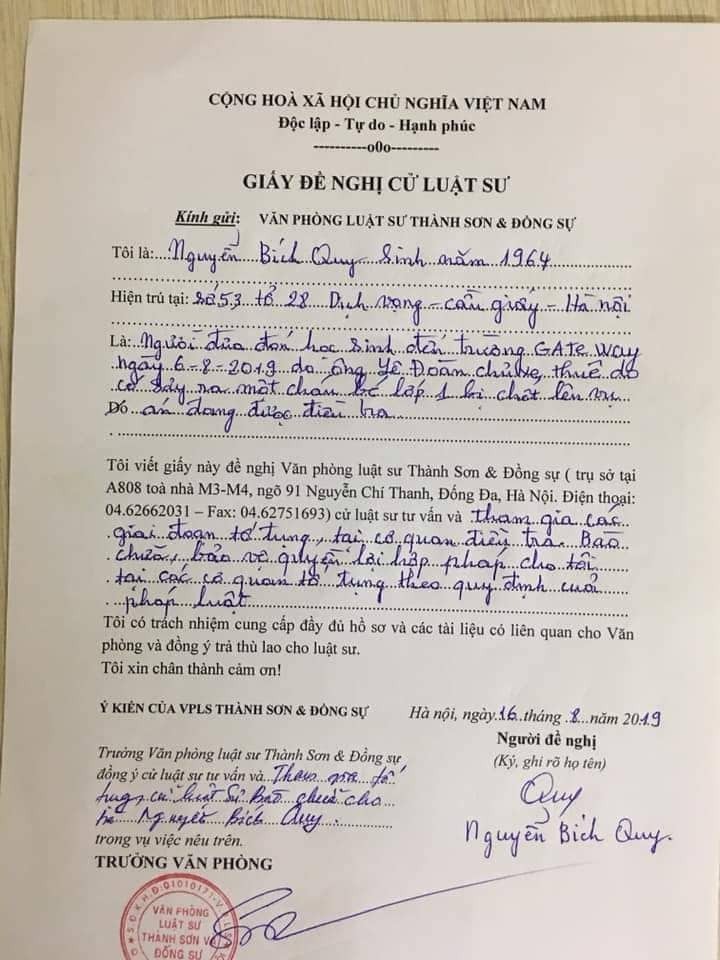 CỘNG HOÀ XÃ HỘI CHỦ NGHĨA VIỆT NAM
Độc lập - Tự do - Hạnh phúc
----------o0o---------
GIẤY ĐỀ NGHỊ CỬ LUẬT SƯ
Kính gửi: VĂN PHÒNG LUẬT SƯ THÀNH SƠN & ĐỒNG SỰ
Tôi là: Nguyễn Bích Quy sinh năm 1964
Hiện trú tại: số 53 tổ 28 Dịch vọng - cầu giấy - Hà nội
Là: Người đưa đón học sinh đến trường GATE Way
ngày 6-8-2019 do ông Yê Đoàn chủ xe, thuê do
có sảy ra một cháu bé lớp 1 bị chết lên vụ
Do án đang được điều tra
Tôi viết giấy này đề nghị Văn phòng luật sư Thành Sơn & Đồng sự ( trụ sở tại
A808 toà nhà M3-M4, ngõ 91 Nguyễn Chí Thanh, Đống Đa, Hà Nội. Điện thoại:
04.62662031 – Fax: 04.62751693) cử luật sư tư vấn và tham gia các
giai đoạn tố tụng, tại cơ quan điều tra. Bào
chữa, bảo vệ quyền lợi hợp pháp cho tôi
tại các cơ quan tố tụng theo quy định cuả
pháp luật
Tôi có trách nhiệm cung cấp đầy đủ hồ sơ và các tài liệu có liên quan cho Văn
phòng và đồng ý trả thù lao cho luật sư.
Tôi xin chân thành cảm ơn!
Ý KIẾN CỦA VPLS THÀNH SƠN & ĐỒNG SỰ
Trưởng Văn phòng luật sư Thành Sơn & Đồng sự
đồng ý cử luật sư tư vấn và Tham gia tố
tụng cử luật sư Bào chữa cho
bà Nguyễn Bích Quy.
trong vụ việc nêu trên.
TRƯỞNG VĂN PHÒNG
VĂN PHÒNG
LUẬT SƯ
THÀNH SƠN VÀ
ĐỒNG SỰ
Hà nội, ngày 16 tháng 8 năm 2019
Người đề nghị
(Ký, ghi rõ họ tên)
Quy
Nguyễn Bích Quy.